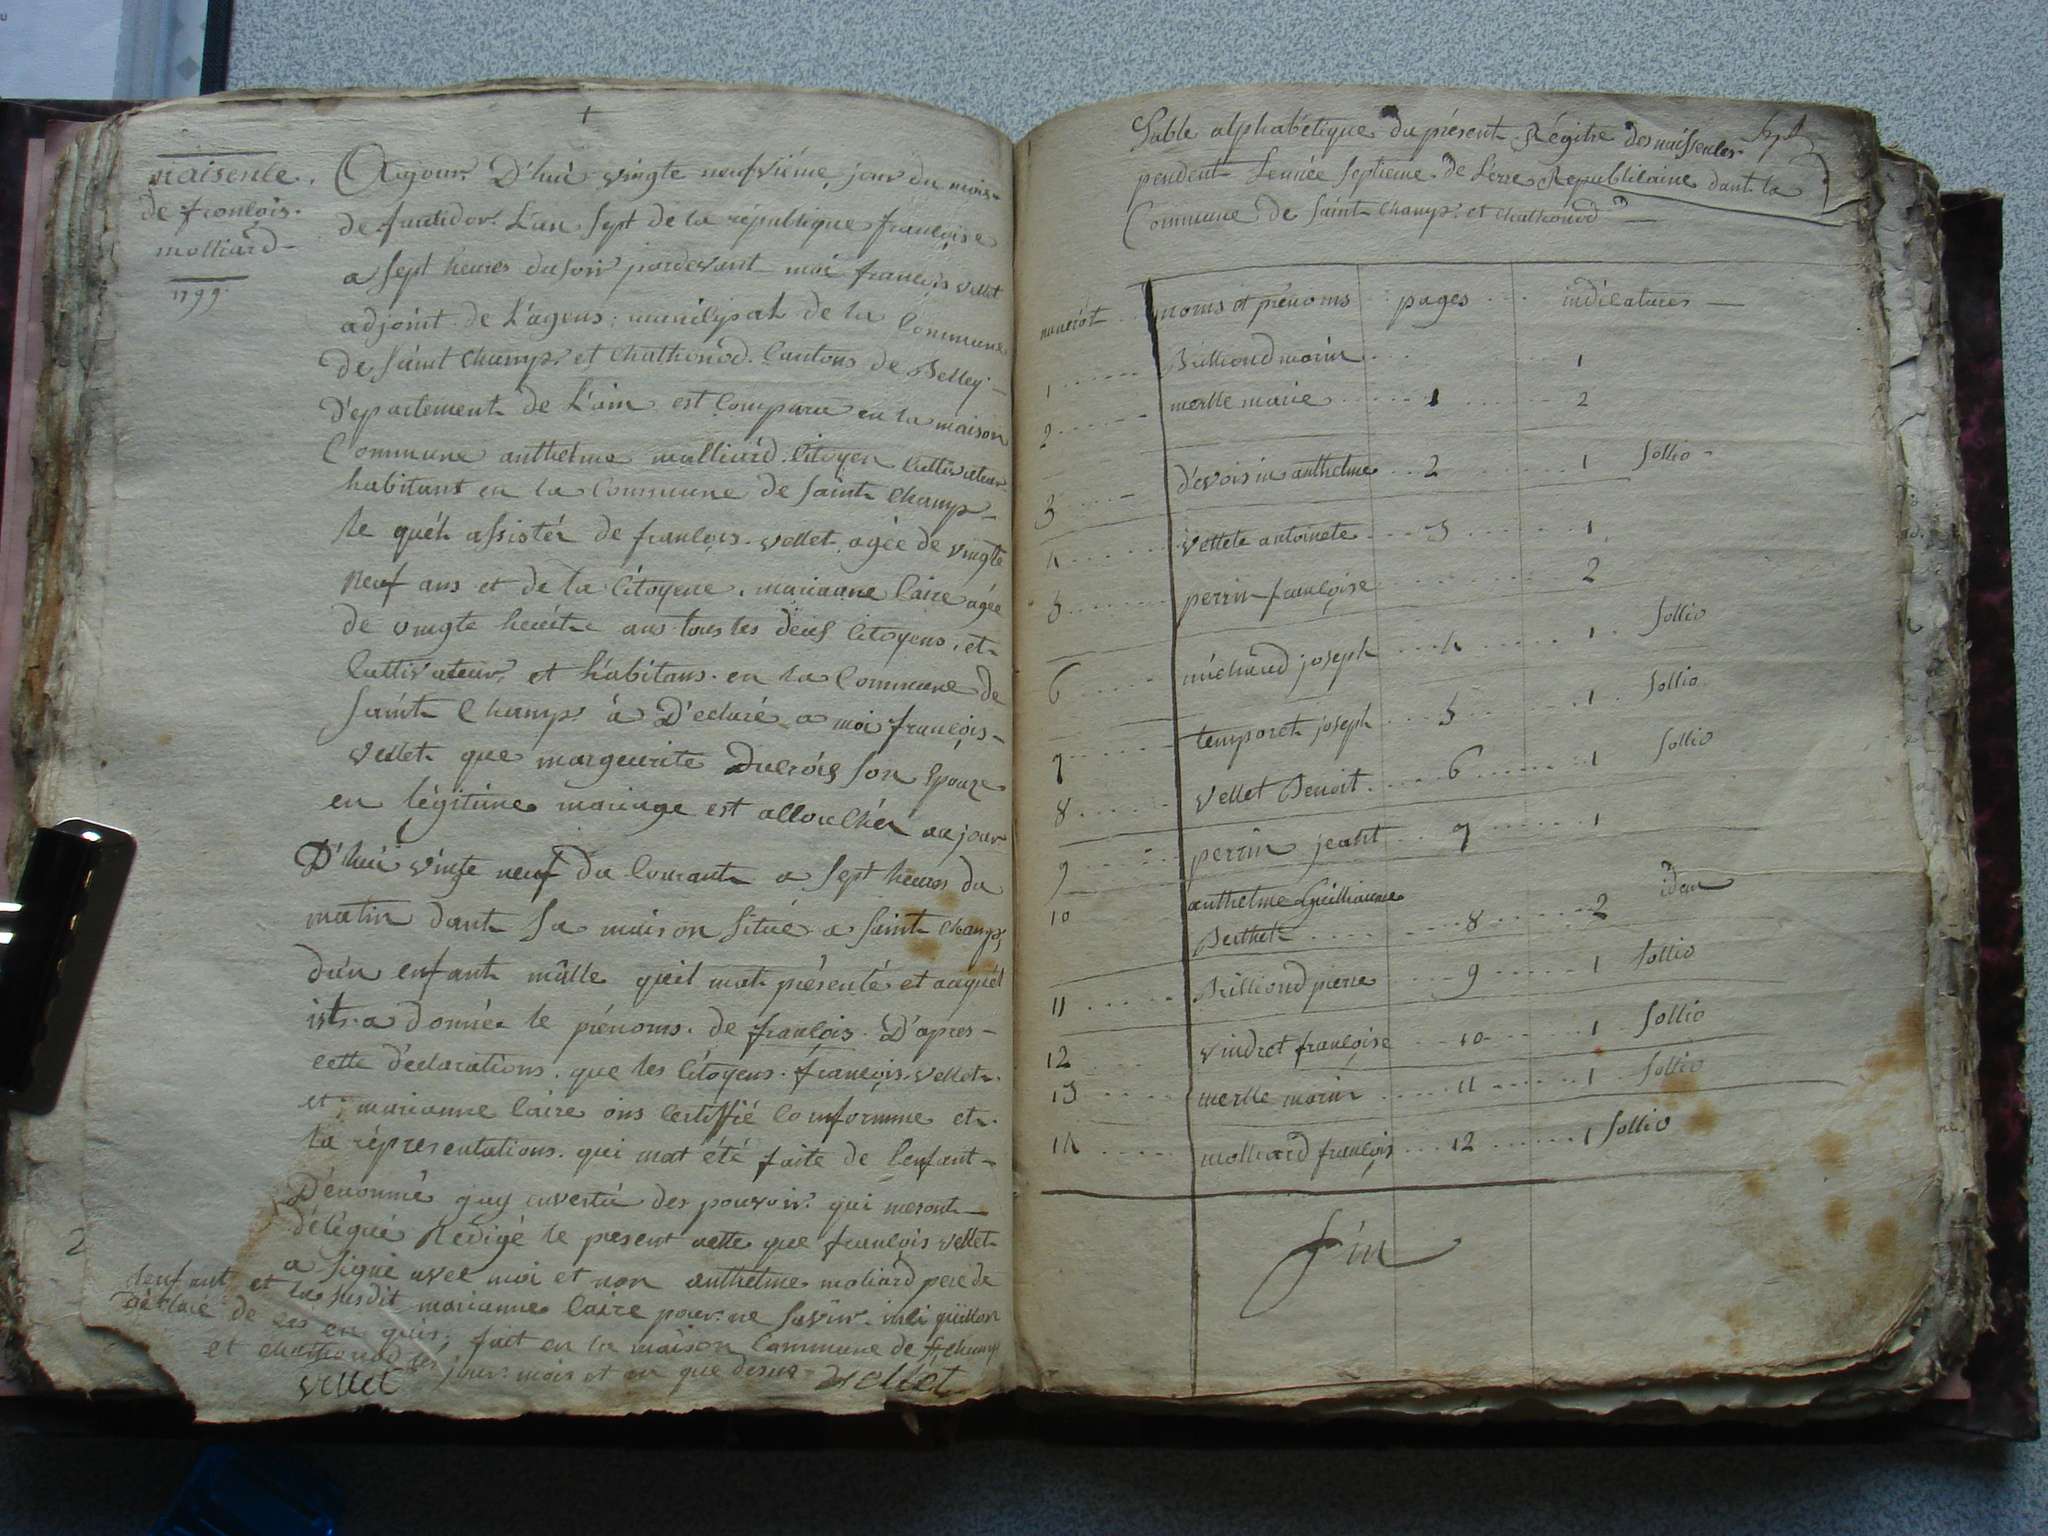 naisence
de francois
molliard
1799
Aujour D'hui vingte neufviéme jour du mois
de fructidor L'an sept de la république françoise
a sept heures du soir pardevant moi françois vellet
adjoint de L'agens municipal de la Commune
de saint Champ et Chathonod Cantons de Belley
D'epartement de L'ain est Comparu en la maison
Commune anthelme molliard Citoyen Cultivateur
habitant en la Commune de saint Champ
le quél assistér de françois vellet agée de vingte
neuf ans et de la Citoyene marianne Caire agée
de vingte ans tous les deux Citoyens et
Cultivateur et habitans en la Commune de
saint Champ à D'eclaré a moi françois
vellet que marguerite Ducrois son Epouze
en légitime mariage est accouchér aujour
D'hui vingte neuf du Courant a sept heures du
matin dant sa maison située a saint Champ
d'un enfant mâlle qu'il mat présenté et auquél
ist a donnée le prénoms de françois D'apres
cette d'éclarations que les Citoyens françois vellet
et marianne Caire ons Certiffié Conformme et
la réprésentations qui mat été faite de l'enfant
D'énommé des pouvoir qui meront
délégué Rédigé le present acte que françois vellet
a signé avec moi et non anthelme moliard pere de
lenfant et la susdit marianne Caire pour ne savoir
déclaré de ces en quis fait en la maison Commune de st champ
et Chathonod les jour mois et an que desus
vellet vellet
2
Table alphabétique du présent Régitre des naissences
pendent L'ennée septieme de L'erre Republicaine dant la
Commune de saint Champ et Chathonod
numérot noms et prénoms pages indicatures
1 Billiond morin 1
2 merlle marie 1 2
3 dévoisin anthelme 2 1 follio
4 vellet antoinete 3 1
5 perrin françoise 2
6 michaud joseph 4 1 follio
7 temporet joseph 5 1 follio
8 vellet Benoit 6 1 follio
9 perrin jeant 7 1
10 anthelme Guilliaume
Berthet 8 2 idem
11 Billiond pierre 9 1 follio
12 vindret françoise 10 1 follio
13 merlle morin 11 1 follio
14 molliard françois 12 1 follio
fin